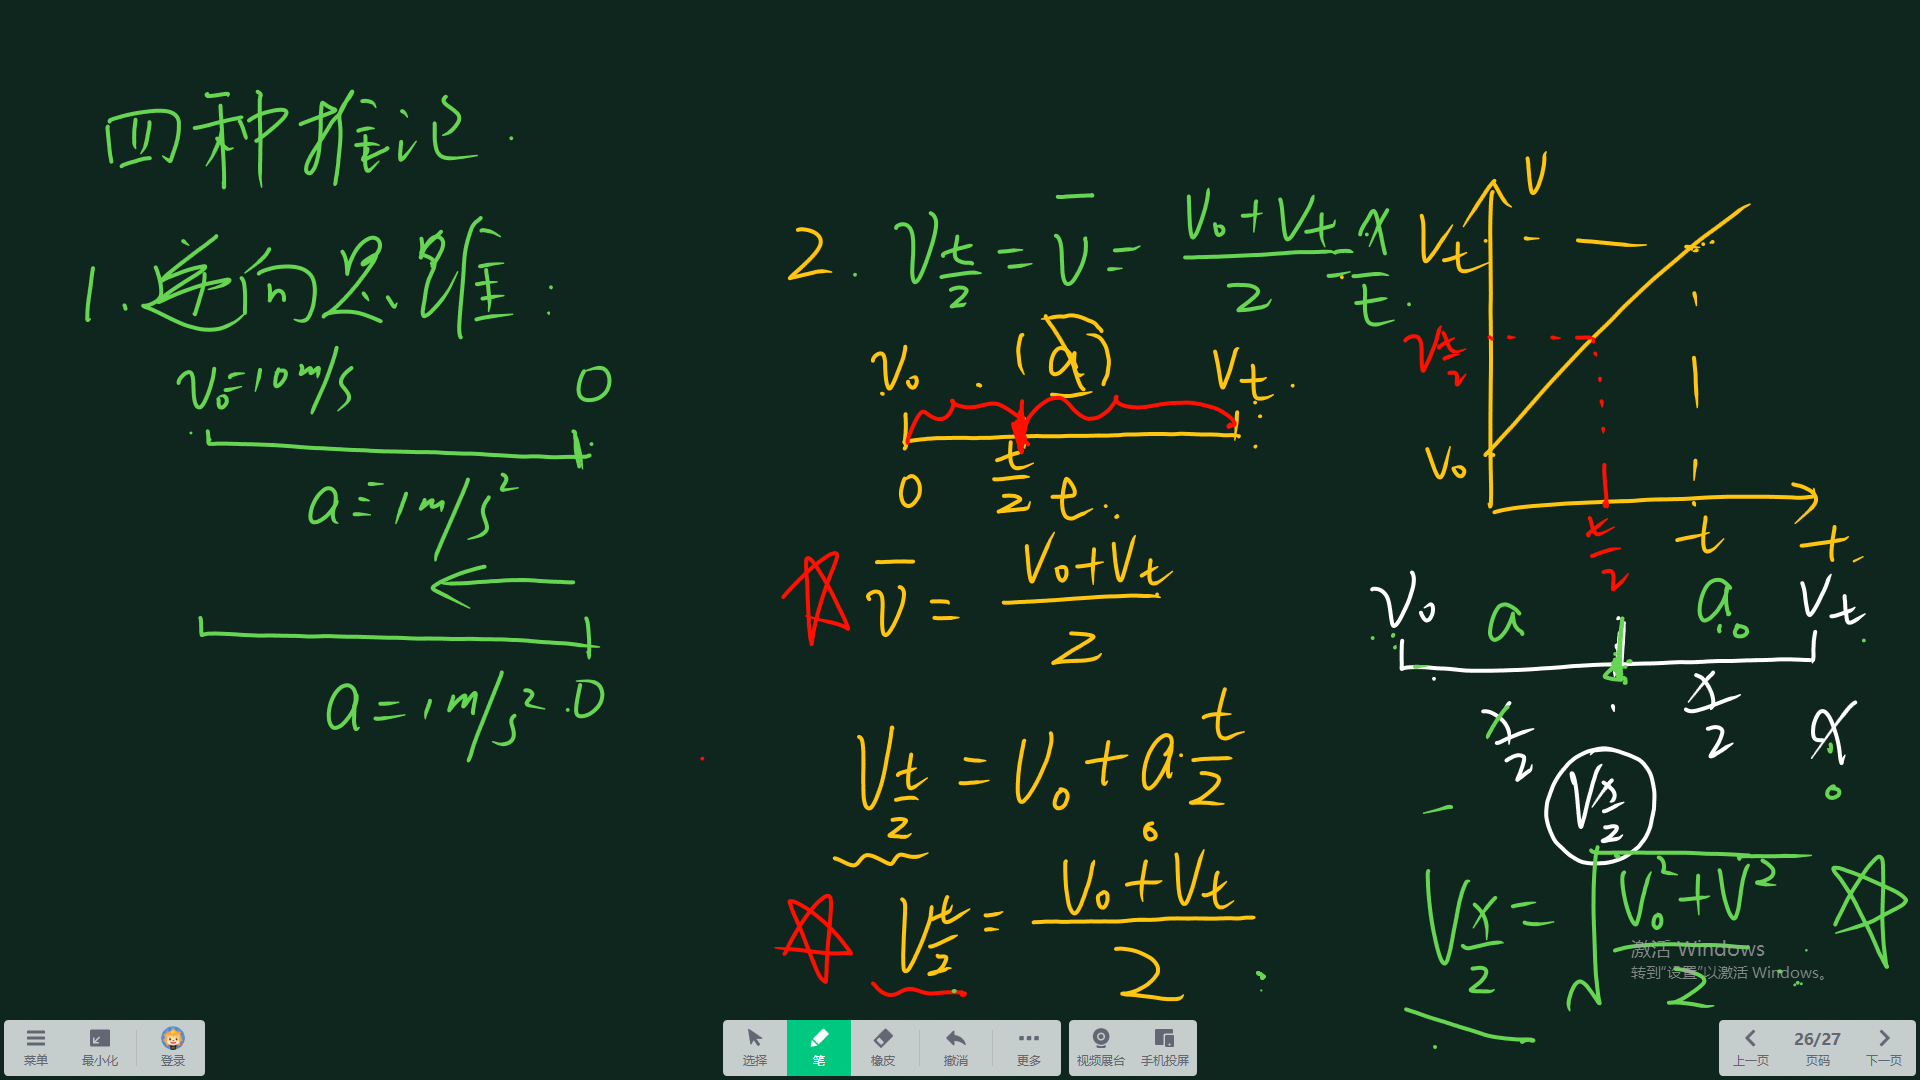 四种推论.
1.逆向思维:
v₀=10m/s 0
a=1m/s²
a=1m/s² 0
2. V_{t/2}=\overline{V}=\frac{V₀+Vt}{2}=\frac{x}{t}.
V₀ (a) Vt
0 t/2 t
\overline{V}=\frac{V₀+Vt}{2}
V_{t/2}=V₀+a·\frac{t}{2}
V_{t/2}=\frac{V₀+Vt}{2}
V
Vt
V_{t/2}
V₀
t/2 t t
V₀ a a Vt
x/2 x/2 x
V_{x/2}
V_{x/2}=\sqrt{\frac{V₀²+V²}{2}}
激活 Windows
转到“设置”以激活 Windows。
菜单 最小化 登录
选择 笔 橡皮 撤消 更多
视频展台 手机投屏
26/27
上一页 页码 下一页